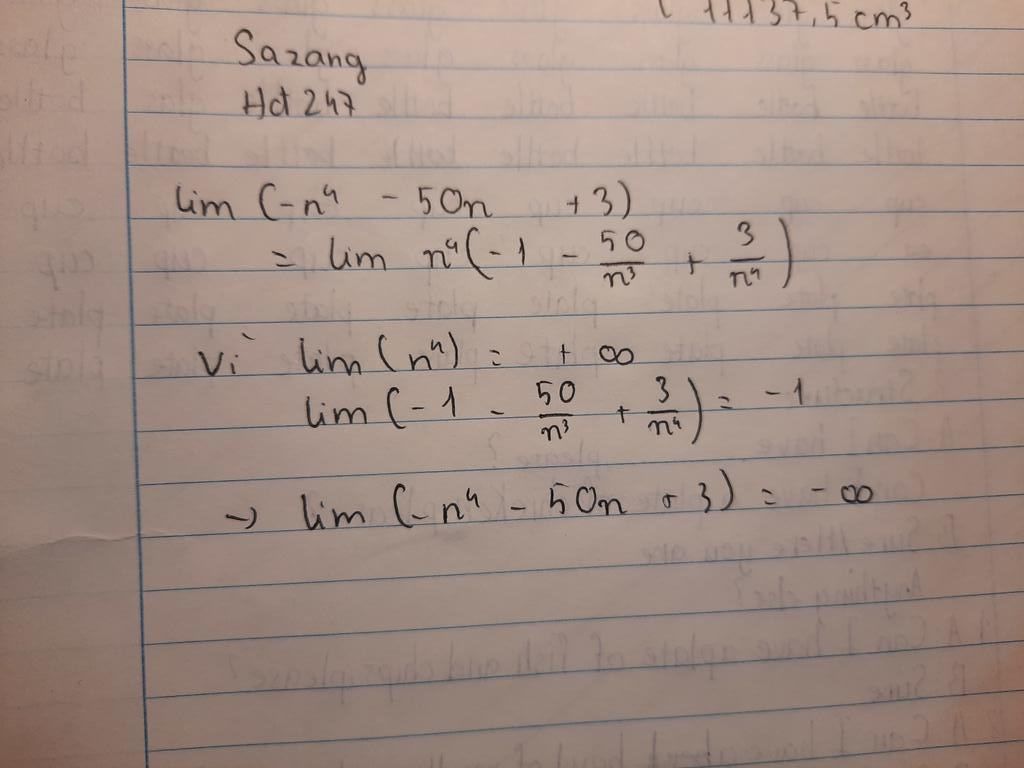 11137,5 cm³
Sazang
Hd 247
lim (-n⁴ - 50n + 3)
= lim n⁴(-1 - 50/n³ + 3/n⁴)
Vì lim (n⁴) = + ∞
lim (-1 - 50/n³ + 3/n⁴) = -1
→ lim (-n⁴ - 50n + 3) = - ∞